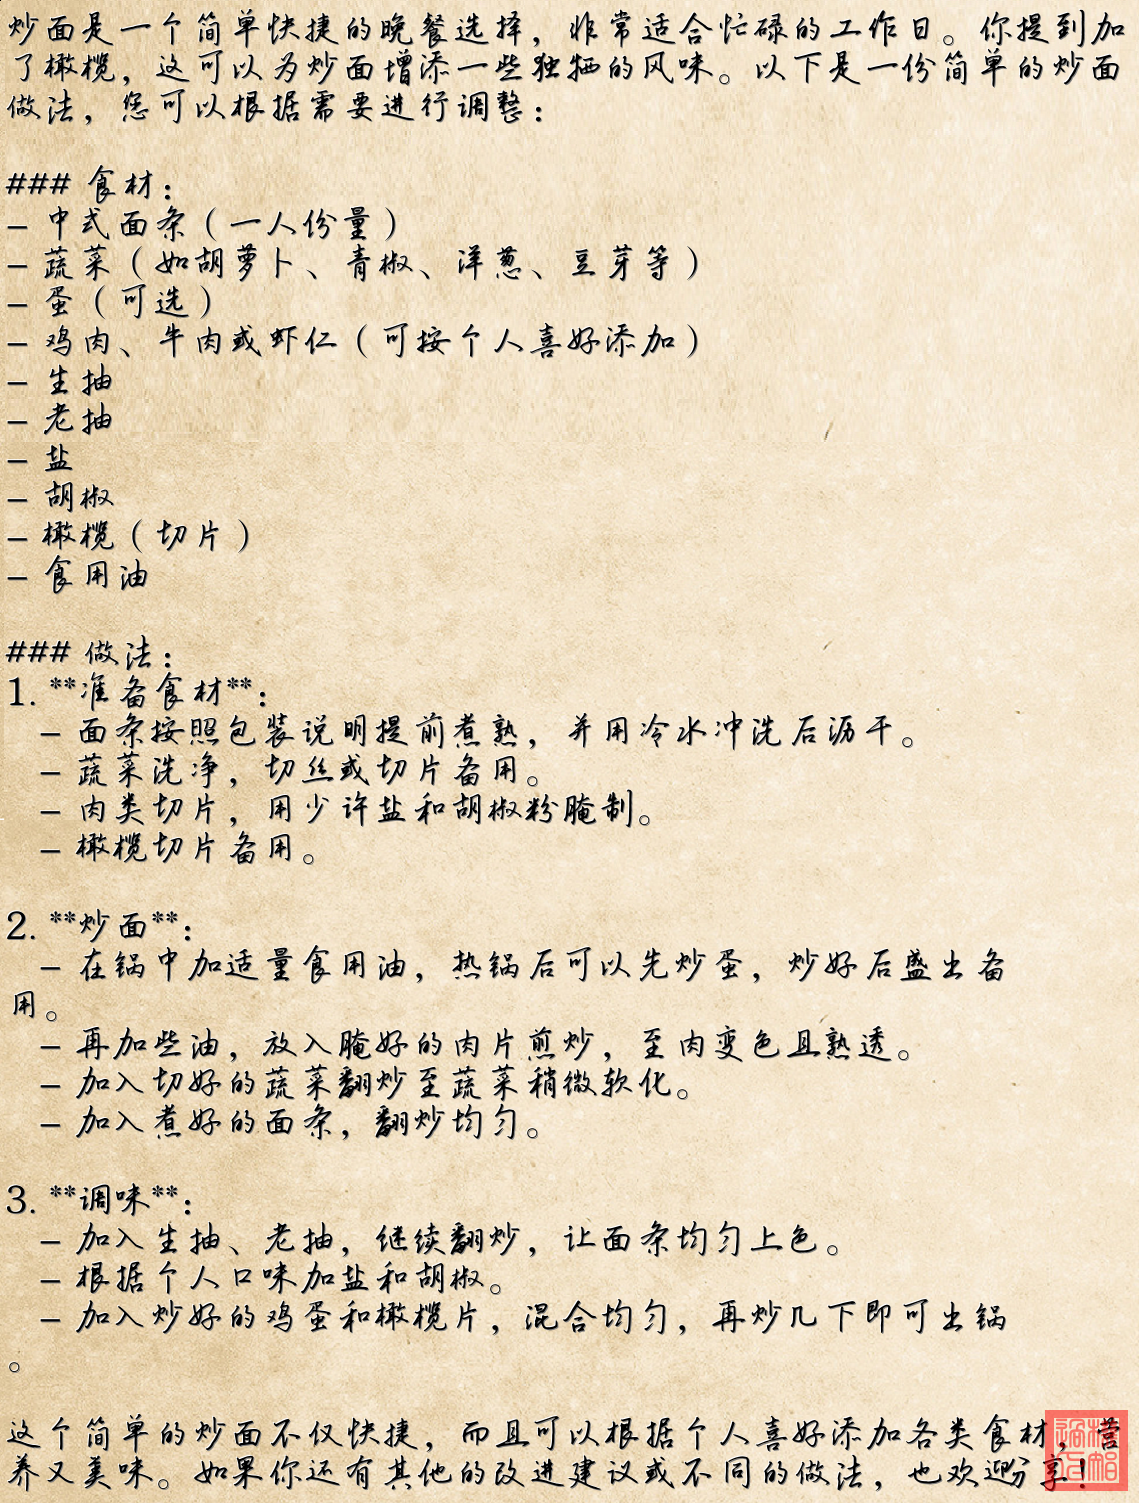 炒面是一个简单快捷的晚餐选择，非常适合忙碌的工作日。你提到加
了橄榄，这可以为炒面增添一些独特的风味。以下是一份简单的炒面
做法，您可以根据需要进行调整：
### 食材：
- 中式面条（一人份量）
- 蔬菜（如胡萝卜、青椒、洋葱、豆芽等）
- 蛋（可选）
- 鸡肉、牛肉或虾仁（可按个人喜好添加）
- 生抽
- 老抽
- 盐
- 胡椒
- 橄榄（切片）
- 食用油
### 做法：
1. **准备食材**：
- 面条按照包装说明提前煮熟，并用冷水冲洗后沥干。
- 蔬菜洗净，切丝或切片备用。
- 肉类切片，用少许盐和胡椒粉腌制。
- 橄榄切片备用。
2. **炒面**：
- 在锅中加适量食用油，热锅后可以先炒蛋，炒好后盛出备
用。
- 再加些油，放入腌好的肉片煎炒，至肉变色且熟透。
- 加入切好的蔬菜翻炒至蔬菜稍微软化。
- 加入煮好的面条，翻炒均匀。
3. **调味**：
- 加入生抽、老抽，继续翻炒，让面条均匀上色。
- 根据个人口味加盐和胡椒。
- 加入炒好的鸡蛋和橄榄片，混合均匀，再炒几下即可出锅
。
这个简单的炒面不仅快捷，而且可以根据个人喜好添加各类食材，营
养又美味。如果你还有其他的改进建议或不同的做法，也欢迎分享！